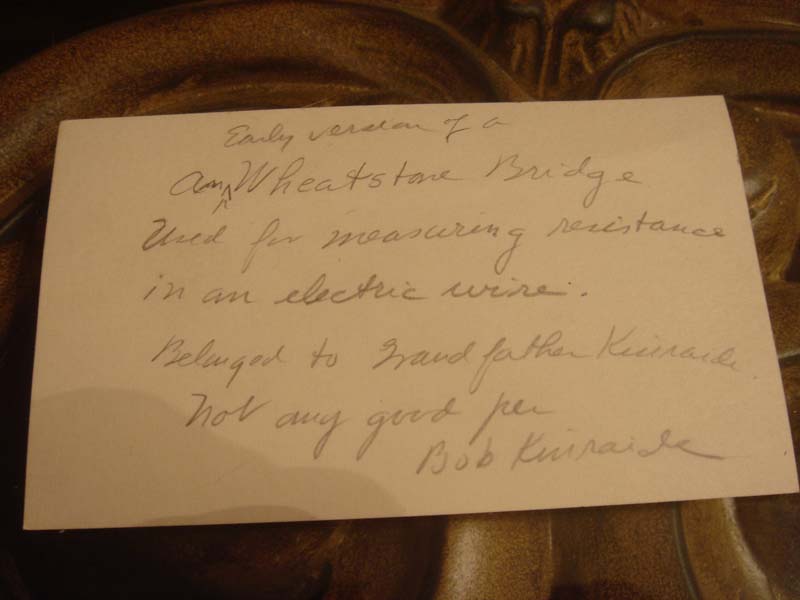 Early version of a
an Wheatstone Bridge
Used for measuring resistance
in an electric wire.
Belonged to Grandfather Kinraide.
Not any good per
Bob Kinraide